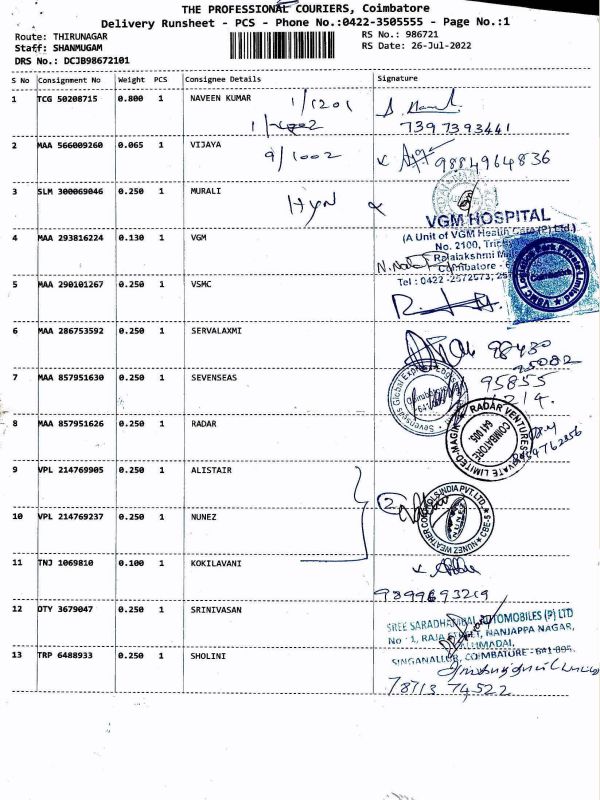 THE PROFESSIONAL COURIERS, Coimbatore
Delivery Runsheet - PCS - Phone No.:0422-3505555 - Page No.:1
Route: THIRUNAGAR
Staff: SHANMUGAM
DRS No.: DCJB98672101
RS No.: 986721
RS Date: 26-Jul-2022
S No Consignment No Weight PCS Consignee Details Signature
1 TCG 50208715 0.800 1 NAVEEN KUMAR 1/1201
1/1002
7397393441
2 MAA 566009260 0.065 1 VIJAYA 9/1002 9884964836
3 SLM 300069046 0.250 1 MURALI
VGM HOSPITAL
(A Unit of VGM Health Care (P) Ltd.)
4 MAA 293816224 0.130 1 VGM No. 2100,
Rajalakshmi
Coimbatore -
Tel : 0422 -2572673,
VSMC Private Limited
Coimbatore
5 MAA 290101267 0.250 1 VSMC
6 MAA 286753592 0.250 1 SERVALAXMI 98430
25082
7 MAA 857951630 0.250 1 SEVENSEAS 95855
214.
Sevenseas Global Express Logistics
Coimbatore
641
8 MAA 857951626 0.250 1 RADAR
RADAR VENTURES PRIVATE LIMITED
COIMBATORE
641 005.
9 VPL 214769905 0.250 1 ALISTAIR 2
10 VPL 214769237 0.250 1 NUNEZ
NUNEZ WEATHER COOLS-INDIA PVT.LTD. CBE-5
NUNEZ
11 TNJ 1069810 0.100 1 KOKILAVANI
9899693219
12 OTY 3679047 0.250 1 SRINIVASAN
SREE SARADHAMBAL AUTOMOBILES (P) LTD
No : 1, RAJA STREET, NANJAPPA NAGAR,
SINGANALLUR, COIMBATORE - 641 005.
13 TRP 6488933 0.250 1 SHOLINI
78713 74522